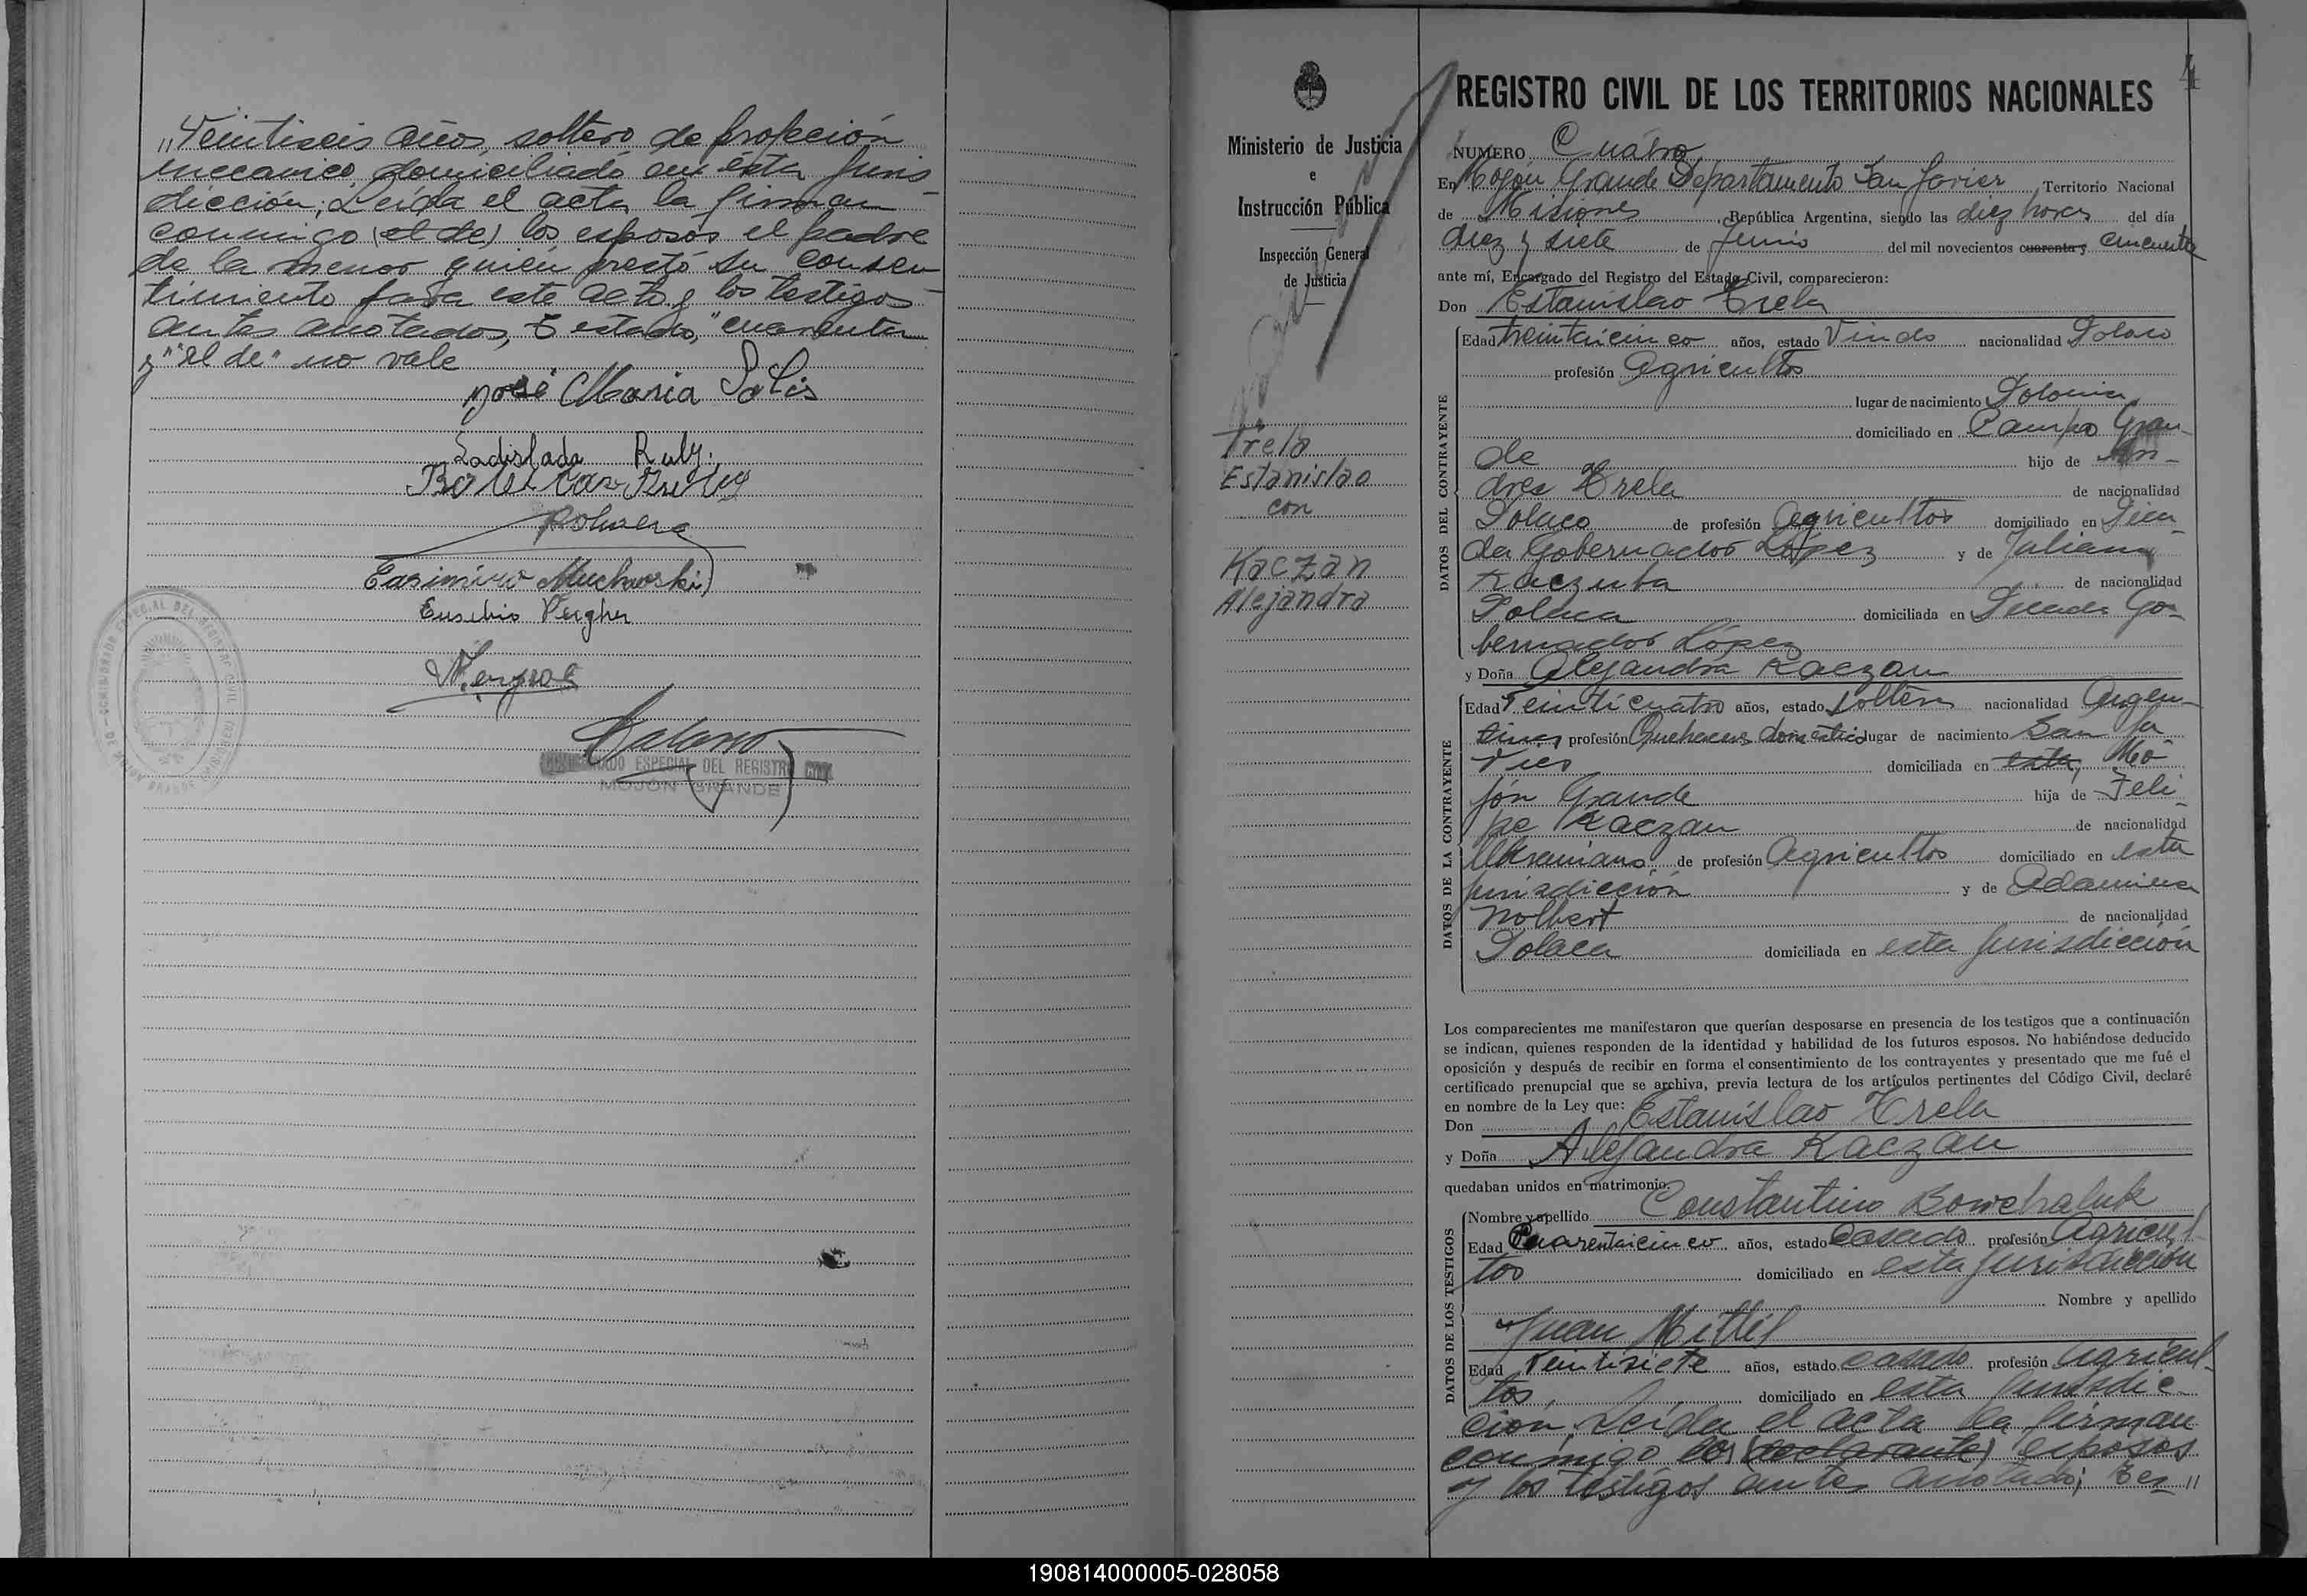 "Veintiseis años, soltero de profeción
meccanico, domiciliado en ésta juris
dicción; Leída el acta la firman
conmigo (el de) los esposos el padre
de la menor quién prestó su consen
timiento para este acto y los testigos
antes anotados, T estado, "cuarenta
y" "el de" no vale
José Maria Solis
Ladislada Ruly.
Casimiro Muchowski
Eusebio
ESPECIAL DEL REGISTRO CIVIL
MOJON GRANDE
4
Ministerio de Justicia
e
Instrucción Pública
Inspección General
de Justicia
Trela
Estanislao
con
Kaczan
Alejandra
REGISTRO CIVIL DE LOS TERRITORIOS NACIONALES
NUMERO Cuatro
En Mojón Grande Departamento San Javier Territorio Nacional
de Misiones República Argentina, siendo las diez horas del día
diez y siete de Junio del mil novecientos cuarenta y cincuenta
ante mí, Encargado del Registro del Estado Civil, comparecieron:
Don Estanislao Trela
DATOS DEL CONTRAYENTE
Edad treintaicinco años, estado Viudo nacionalidad Polaco
profesión Agricultor
lugar de nacimiento Polonia
domiciliado en Campo Gran-
de hijo de An-
dres Trela de nacionalidad
Polaco de profesión Agricultor domiciliado en Picada
da Gobernador López y de Juliana
Kaczuba de nacionalidad
Polaca domiciliada en Picada Go-
bernador López
y Doña Alejandra Kaczan
DATOS DE LA CONTRAYENTE
Edad Veinticuatro años, estado soltera nacionalidad Argen-
tina profesión Quehaceres domestico lugar de nacimiento San Ja
vier domiciliada en esta, Mo-
jón Grande hija de Feli-
pe Kaczan de nacionalidad
Ukraniano de profesión Agricultor domiciliado en esta
jurisdicción y de Adamina
Nolbert de nacionalidad
Polaca domiciliada en esta jurisdicción
Los comparecientes me manifestaron que querían desposarse en presencia de los testigos que a continuación
se indican, quienes responden de la identidad y habilidad de los futuros esposos. No habiéndose deducido
oposición y después de recibir en forma el consentimiento de los contrayentes y presentado que me fué el
certificado prenupcial que se archiva, previa lectura de los artículos pertinentes del Código Civil, declaré
en nombre de la Ley que:
Don Estanislao Trela
y Doña Alejandra Kaczan
quedaban unidos en matrimonio.
DATOS DE LOS TESTIGOS
Nombre y apellido Constantino Bowchaluk
Edad Cuarentaicinco años, estado Casado profesión Agricul-
tor domiciliado en esta jurisdicción
Nombre y apellido
Juan Mittil
Edad Veintisiete años, estado casado profesión Agricul-
tor domiciliado en esta jurisdic-
ción. Leída el acta la firman
conmigo los (declarante) esposos
y los testigos antes anotado;
190814000005-028058